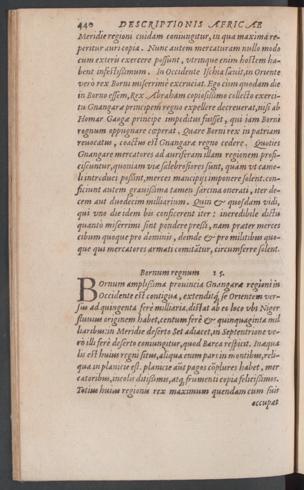 440 DESCRIPTIONIS AFRICAE
Meridie regioni cuidam coniungitur, in qua maxima re-
peritur auri copia. Nunc autem mercaturam nullo modo
cum exteris exercere possunt, vtrunque enim hostem ha-
bent infestissimum. In Occidente Ischia sæuit, in Oriente
verò rex Borni miserrimè excruciat. Ego cùm quodam die
in Borno essem, Rex Abraham copiosissimo collecto exerci-
tu Gnangaræ principem regno expellere decreuerat, nisi ab
Homar Gaogæ principe impeditus fuisset, qui iam Borni
regnum oppugnare cœperat. Quare Borni rex in patriam
reuocatus, coactus est Gnangaræ regno cedere. Quoties
Gnangaræ mercatores ad auriferam illam regionem profi-
ciscuntur, quoniam viæ salebrosiores sunt, quàm vt came-
li introduci possint, merces mancipijs imponere solent, con-
ficiunt autem grauissima tamen sarcina onerati, iter de-
cem aut duodecim milliarium. Quin & quosdam vidi,
qui vno die idem bis conficerent iter: incredibile dictu
quanto miserrimi sint pondere pressi, nam præter merces
cibum quoque pro dominis, deinde & pro militibus quo-
que qui mercatores armati comitātur, circumferre solent.
Bornum regnum 15.
Bornum amplissima prouincia Gnangaræ regioni in
Occidente est contigua, extenditq́; se Orientem ver-
sus ad quingenta ferè milliaria, distat ab eo loco vbi Niger
fluuius originem habet, centum ferè & quinquaginta mil
liaribus: in Meridie deserto Set adiacet, in Septentrione ve-
rò illi ferè deserto coniungitur, quod Barca respicit. Inæqua
lis est huius regni situs, aliqua enim pars in montibus, reli-
qua in planicie est. planicie aūt pagos cōplures habet, mer-
catoribus, incolis ditissimis, atq́; frumenti copia felicissimos.
Totius huius regionis rex maximum quendam cum suis
occupat